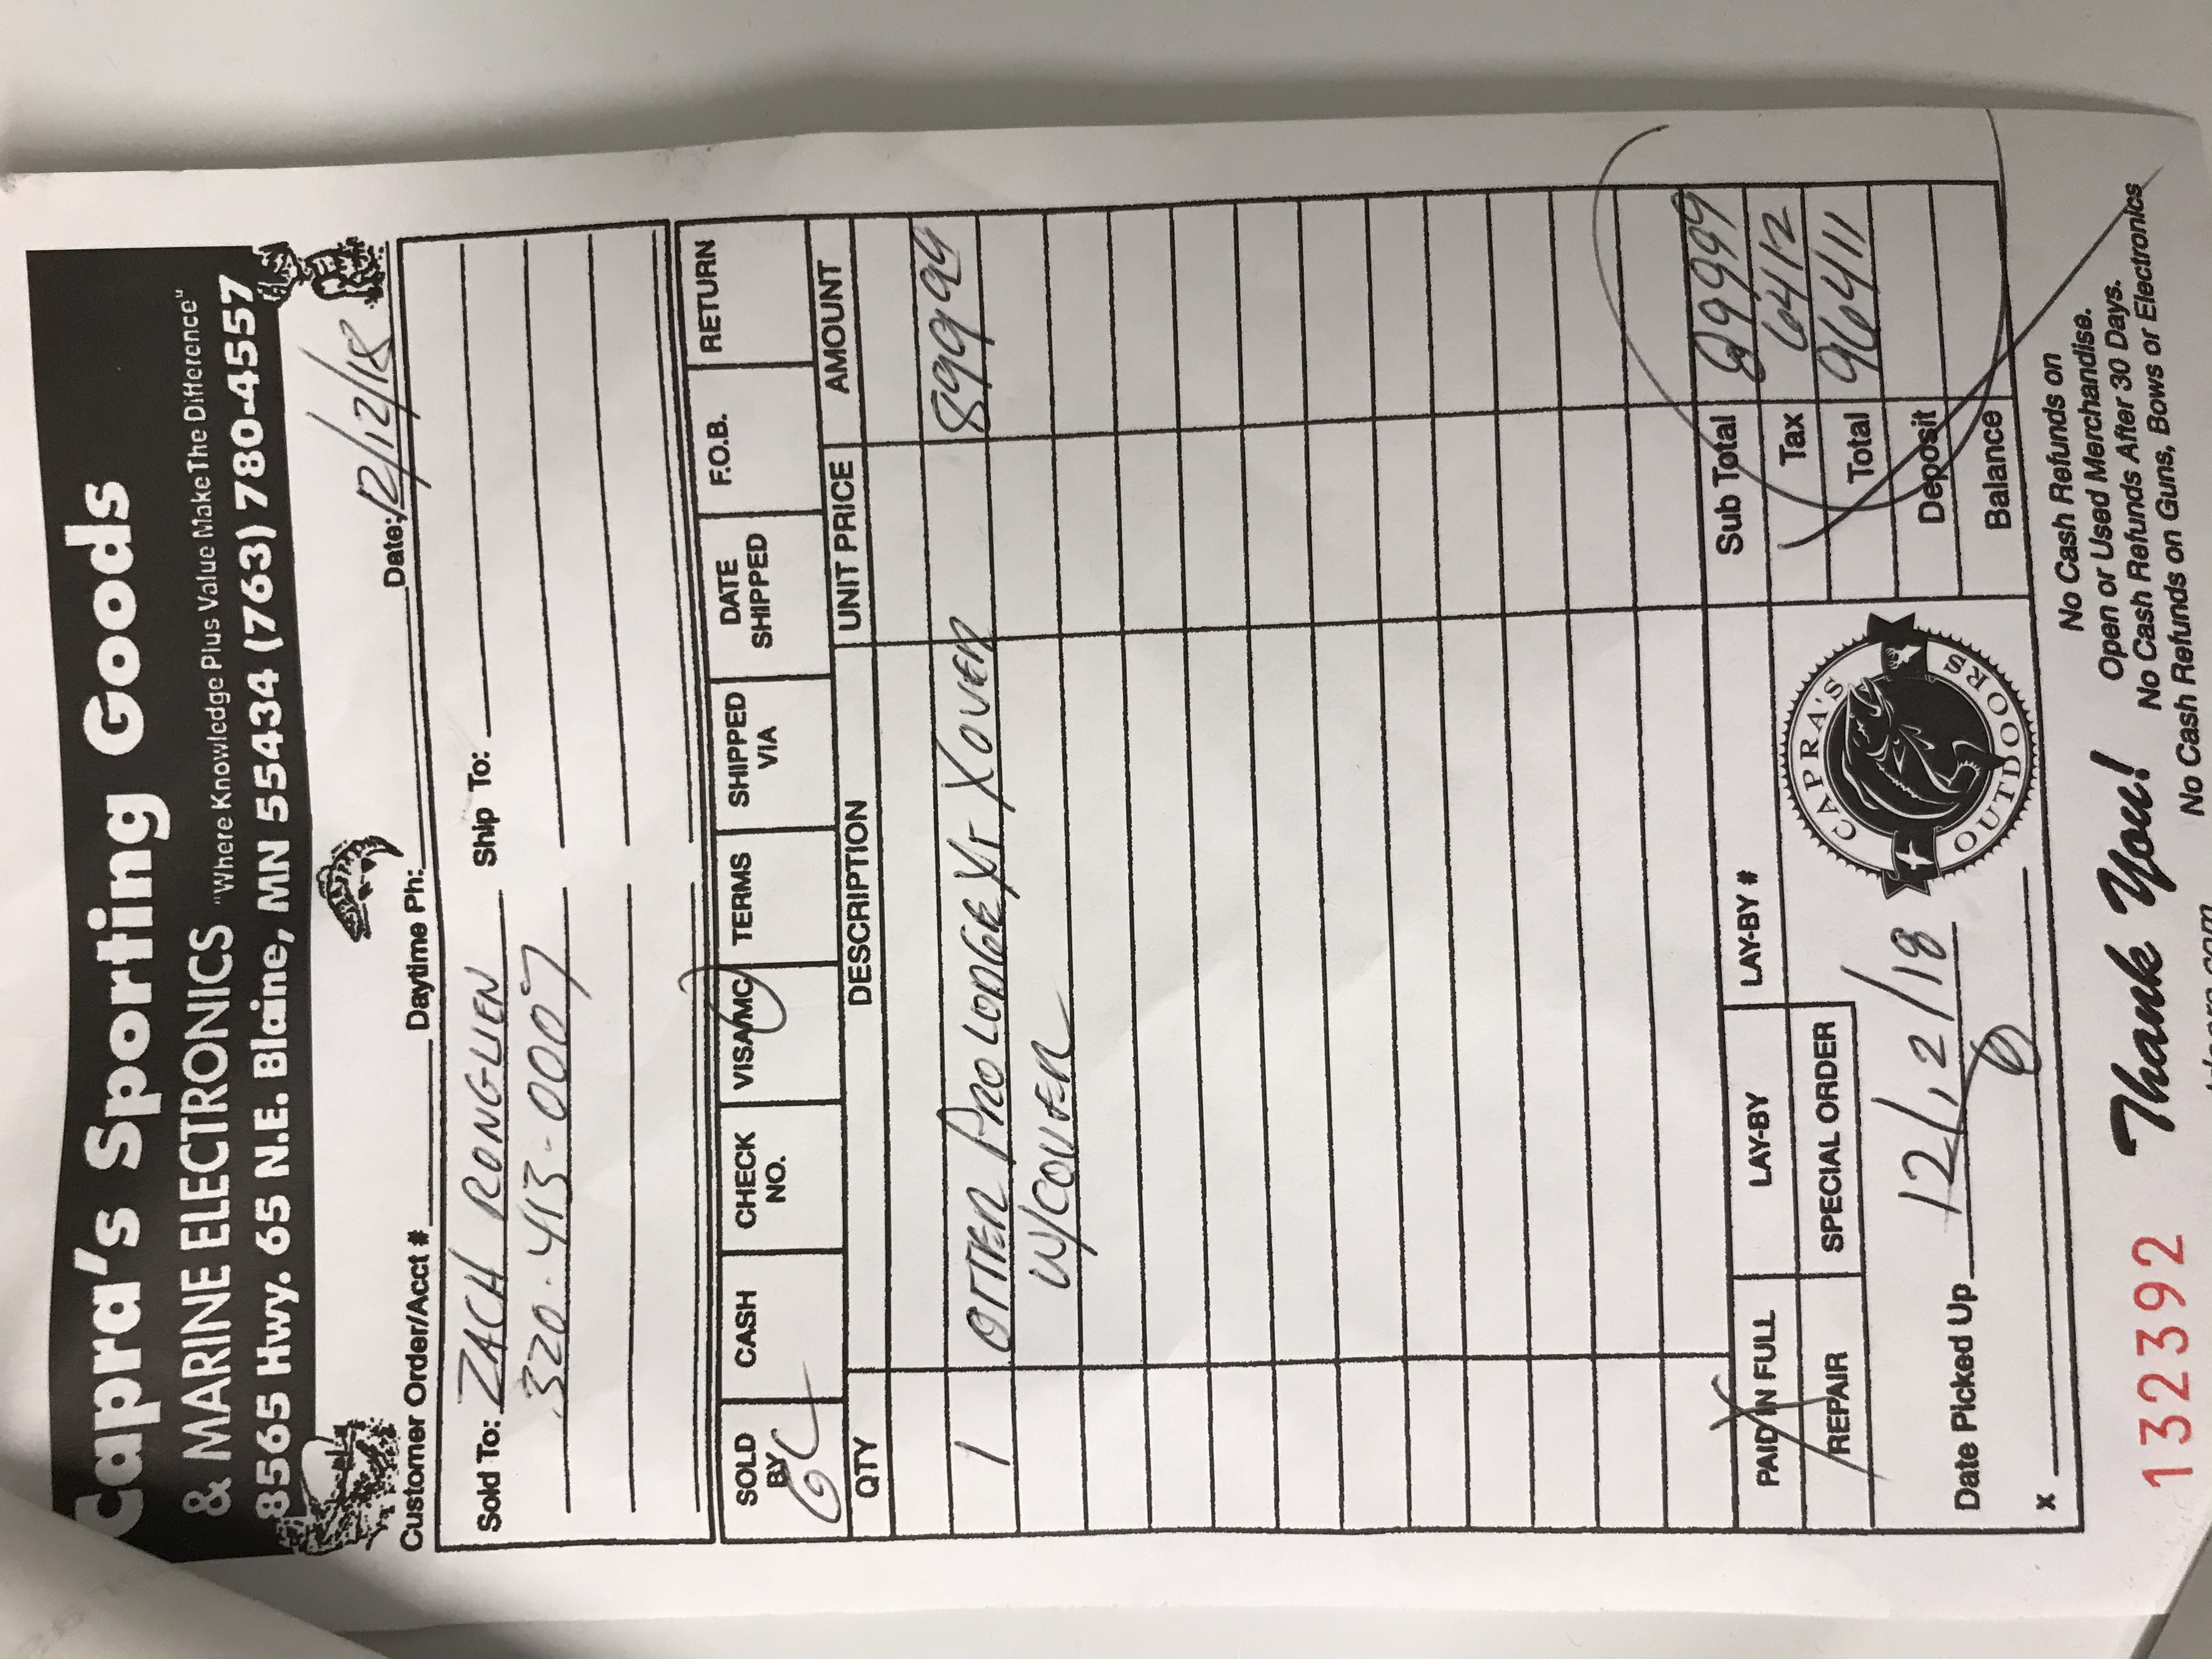 Capra's Sporting Goods
& MARINE ELECTRONICS "Where Knowledge Plus Value Make The Difference"
8565 Hwy. 65 N.E. Blaine, MN 55434 (763) 780-4557
Customer Order/Acct # Daytime Ph: Date: 12/12/18
Sold To: ZACH RONGLIEN Ship To:
320-413-0007
SOLD BY CASH CHECK NO. VISA/MC TERMS SHIPPED VIA DATE SHIPPED F.O.B. RETURN
QTY DESCRIPTION UNIT PRICE AMOUNT
1 OTTER PRO LODGE XT XOVER 899 99
W/COVER
PAID IN FULL LAY-BY LAY-BY # Sub Total 899 99
REPAIR SPECIAL ORDER Tax 64 12
Total 964 11
Date Picked Up 12/12/18 Deposit
x Balance
CAPRA'S OUTDOORS
132392 Thank You!
No Cash Refunds on
Open or Used Merchandise.
No Cash Refunds After 30 Days.
No Cash Refunds on Guns, Bows or Electronics